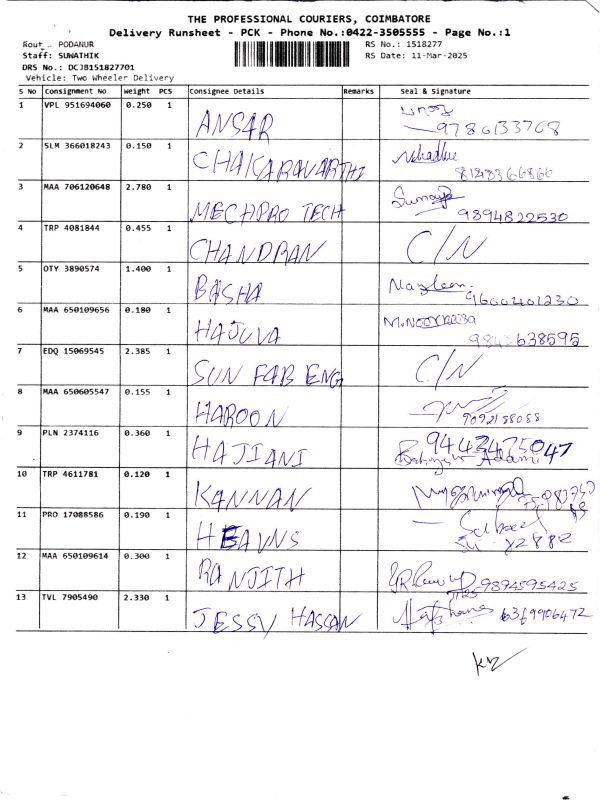 THE PROFESSIONAL COURIERS, COIMBATORE
Delivery Runsheet - PCK - Phone No.:0422-3505555 - Page No.:1
Rout : PODANUR RS No.: 1518277
Staff: SUWATHIK RS Date: 11-Mar-2025
DRS No.: DCJB151827701
Vehicle: Two Wheeler Delivery
S No Consignment No Weight PCS Consignee Details Remarks Seal & Signature
1 VPL 951694060 0.250 1 ANSAR
9786133768
2 SLM 366018243 0.150 1 CHAKARAVARTHI
8148366866
3 MAA 706120648 2.780 1 MECHPRO TECH
9894822530
4 TRP 4081844 0.455 1 CHANDRAN C/N
5 OTY 3890574 1.400 1 BASHA Nazleen
9600401230
6 MAA 650109656 0.180 1 HAJUVA
638595
7 EDQ 15069545 2.385 1 SUN FAB ENG C/N
8 MAA 650605547 0.155 1 HAROON
9092188088
9 PLN 2374116 0.360 1 HAJIANI
10 TRP 4611781 0.120 1 KANNAN
11 PRO 17088586 0.190 1 HEAVNS
12 MAA 650109614 0.300 1 RANJITH 9894595425
13 TVL 7905490 2.330 1 JESSY HASSAN 6369906472